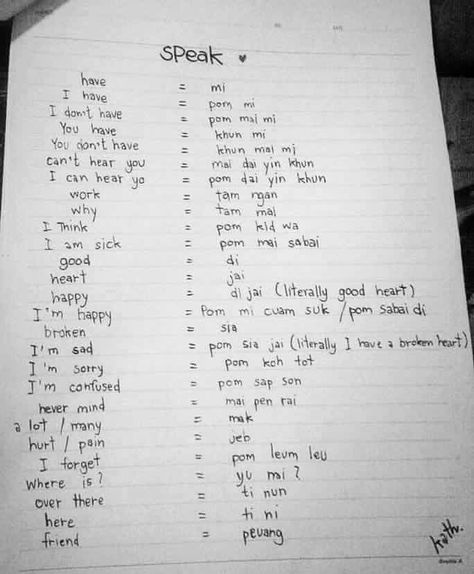 SPeak ♥
have = mi
I have = pom mi
I don't have = pom mai mi
You have = khun mi
You don't have = khun mai mi
can't hear you = mai dai yin khun
I can hear yo = pom dai yin khun
work = tam ngan
why = tam mai
I Think = pom kid wa
I am sick = pom mai sabai
good = di
heart = jai
happy = di jai (literally good heart)
I'm happy = Pom mi cuam suk / pom sabai di
broken = sia
I'm sad = pom sia jai (literally I have a broken heart)
I'm sorry = pom koh tot
I'm confused = pom sap son
never mind = mai pen rai
a lot / many = mak
hurt / pain = jeb
I forget = pom leum leu
Where is? = yu mi?
over there = ti nun
here = ti ni
friend = peuang
kath.